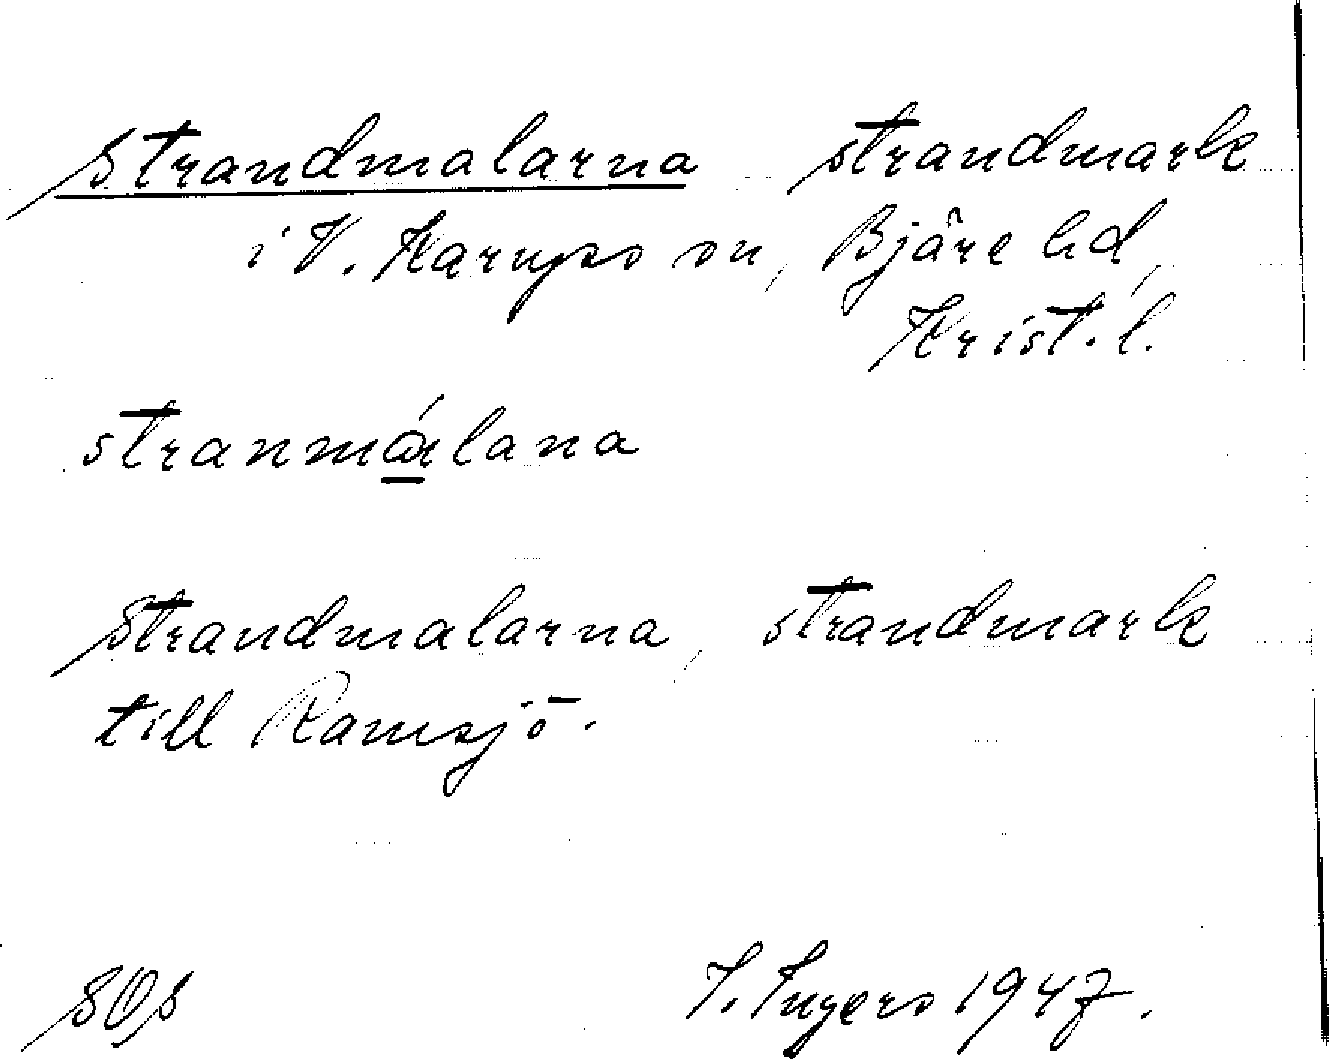 Strandmalarna strandmark
i V. Karups sn, Bjäre hd,
Krist. l.
stranmálana
Strandmalarna, strandmark
till Ramsjö.
SOS I. Ingers 1947.